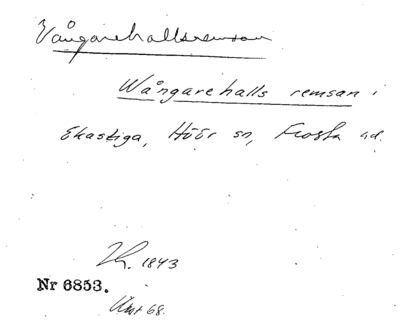 Vångarehallsremsan
Wångarehalls remsan i
Ekastiga, Höör sn, Frosta hd.
1843
Nr 6853.
68.